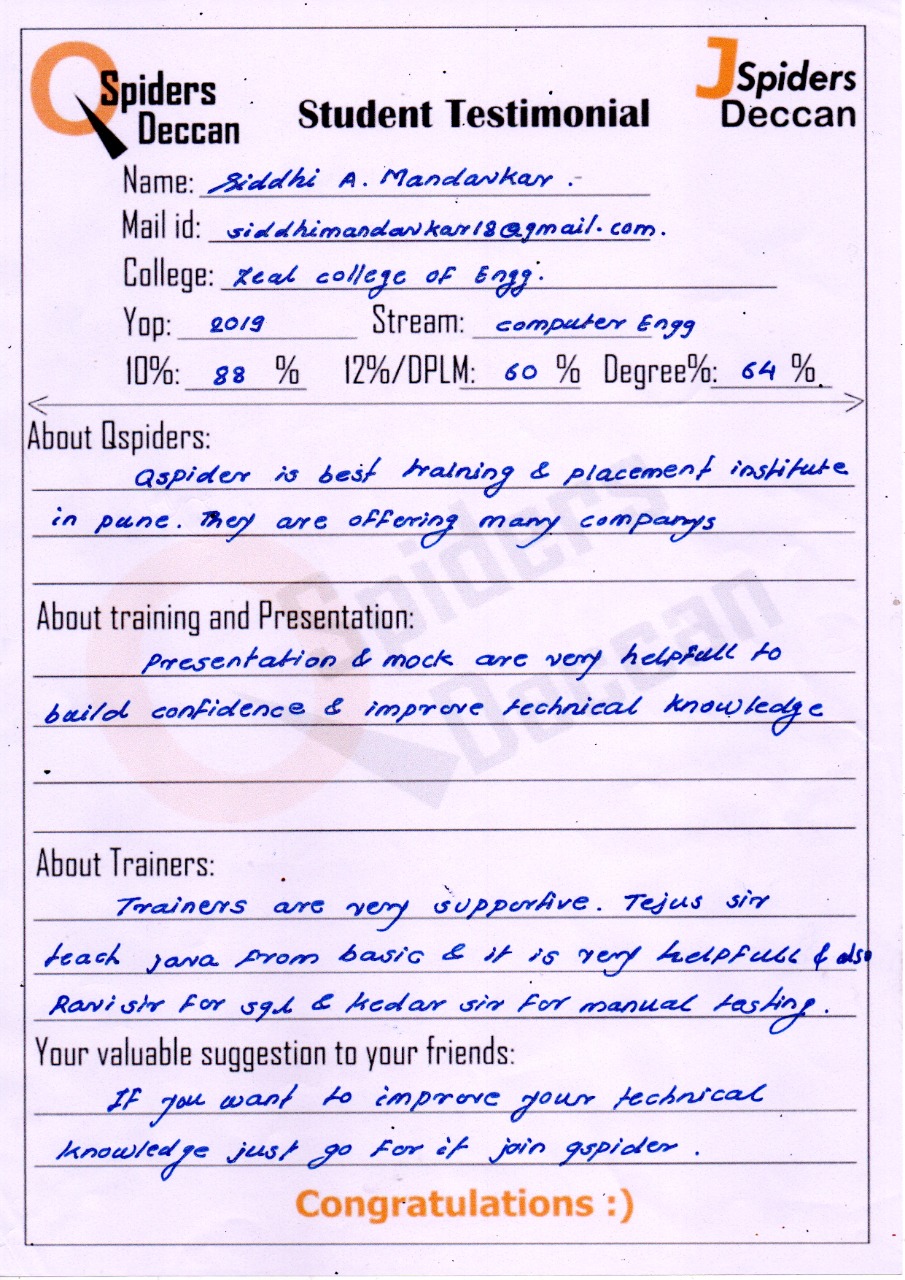 QSpiders
Deccan
Student Testimonial
JSpiders
Deccan
Name: Siddhi A. Mandavkar.
Mail id: siddhimandavkar18@gmail.com.
College: Zeal college of Engg.
Yop: 2019 Stream: computer Engg
10%: 88 % 12%/DPLM: 60 % Degree%: 64 %
About Qspiders:
Qspider is best training & placement institute
in pune. They are offering many companys
About training and Presentation:
Presentation & mock are very helpfull to
build confidence & improve technical knowledge
About Trainers:
Trainers are very supportive. Tejus sir
teach java from basic & it is very helpfull & also
Ravi sir for sql & kedar sir for manual testing.
Your valuable suggestion to your friends:
If you want to improve your technical
knowledge just go for it join qspider.
Congratulations :)
QSpiders
Deccan